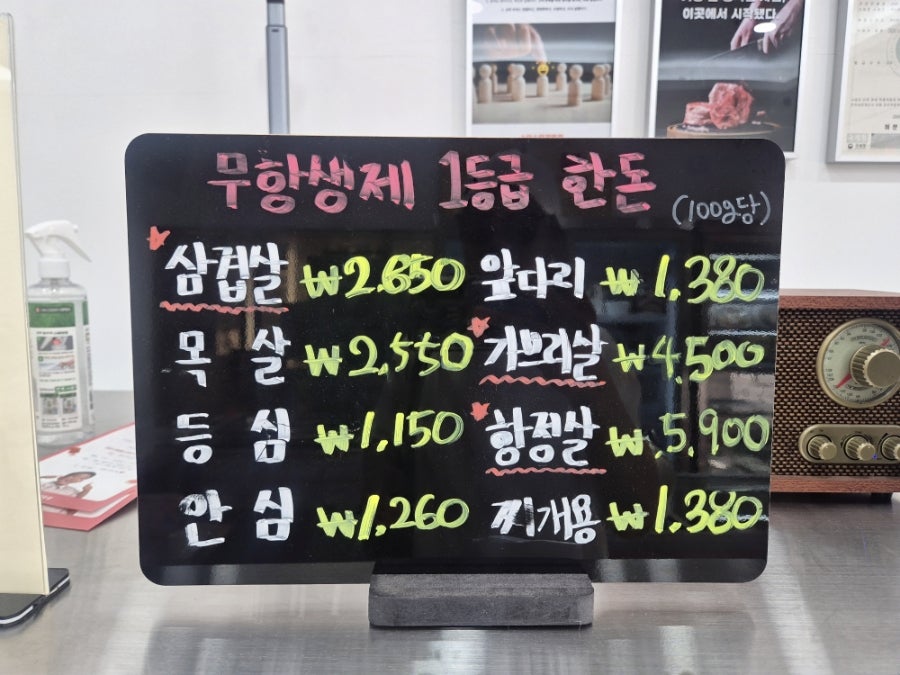 이곳에서 시작됐다.
무항생제 1등급 한돈
(100g당)
삼겹살 ₩2,650 앞다리 ₩1,380
목살 ₩2,550 가브리살 ₩4,500
등심 ₩1,150 항정살 ₩5,900
안심 ₩1,260 찌개용 ₩1,380